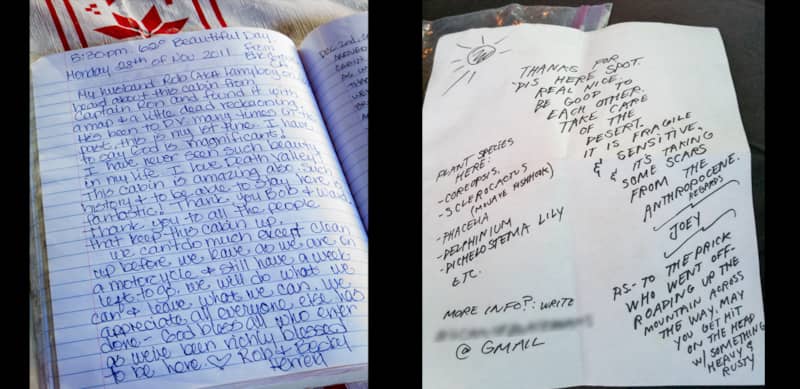 5:30pm. 62° Beautiful Day
Monday 28th of Nov 2011
From
My husband Rob (AKA Fannyboy on
heard about this cabin from
Captain Ron and found it with
a map & a little dead reckoning.
He's been to DV many times in the
past, this is my 1st time. I have
to say God is magnificent!
I have never seen such beauty
in my life. I love Death Valley!
This cabin is amazing also. Such
history & to be able to stay here is
fantastic! Thank you Bob & Wanda
Thank you to all the people
that keep this cabin up.
We can't do much except clean
up before we leave as we are on
a motorcycle & still have a week
left to go. We will do what we
can & leave what we can. We
appreciate all everyone else has
done - God bless all who enter
as we've been richly blessed
to be here. ♡ Rob & Becky
DEC 2nd, 2
THANKS FOR
DIS HERE SPOT.
REAL NICE.
BE GOOD TO
EACH OTHER.
TAKE CARE
OF THE
DESERT.
IT IS FRAGILE
& SENSITIVE.
& IT'S TAKING
SOME SCARS
FROM THE
ANTHROPOCENE.
REGARDS
JOEY
PLANT SPECIES
HERE:
- COREOPSIS,
- SCLEROCACTUS
(MOJAVE FISHHOOK)
- PHACELIA
- DELPHINIUM
- DICHELOSTEMA LILY
ETC.
MORE INFO?: WRITE
@ GMAIL
PS- TO THE PRICK
WHO WENT OFF-
ROADING UP THE
MOUNTAIN ACROSS
THE WAY, MAY
YOU GET HIT
ON THE HEAD
W/ SOMETHING
HEAVY &
RUSTY